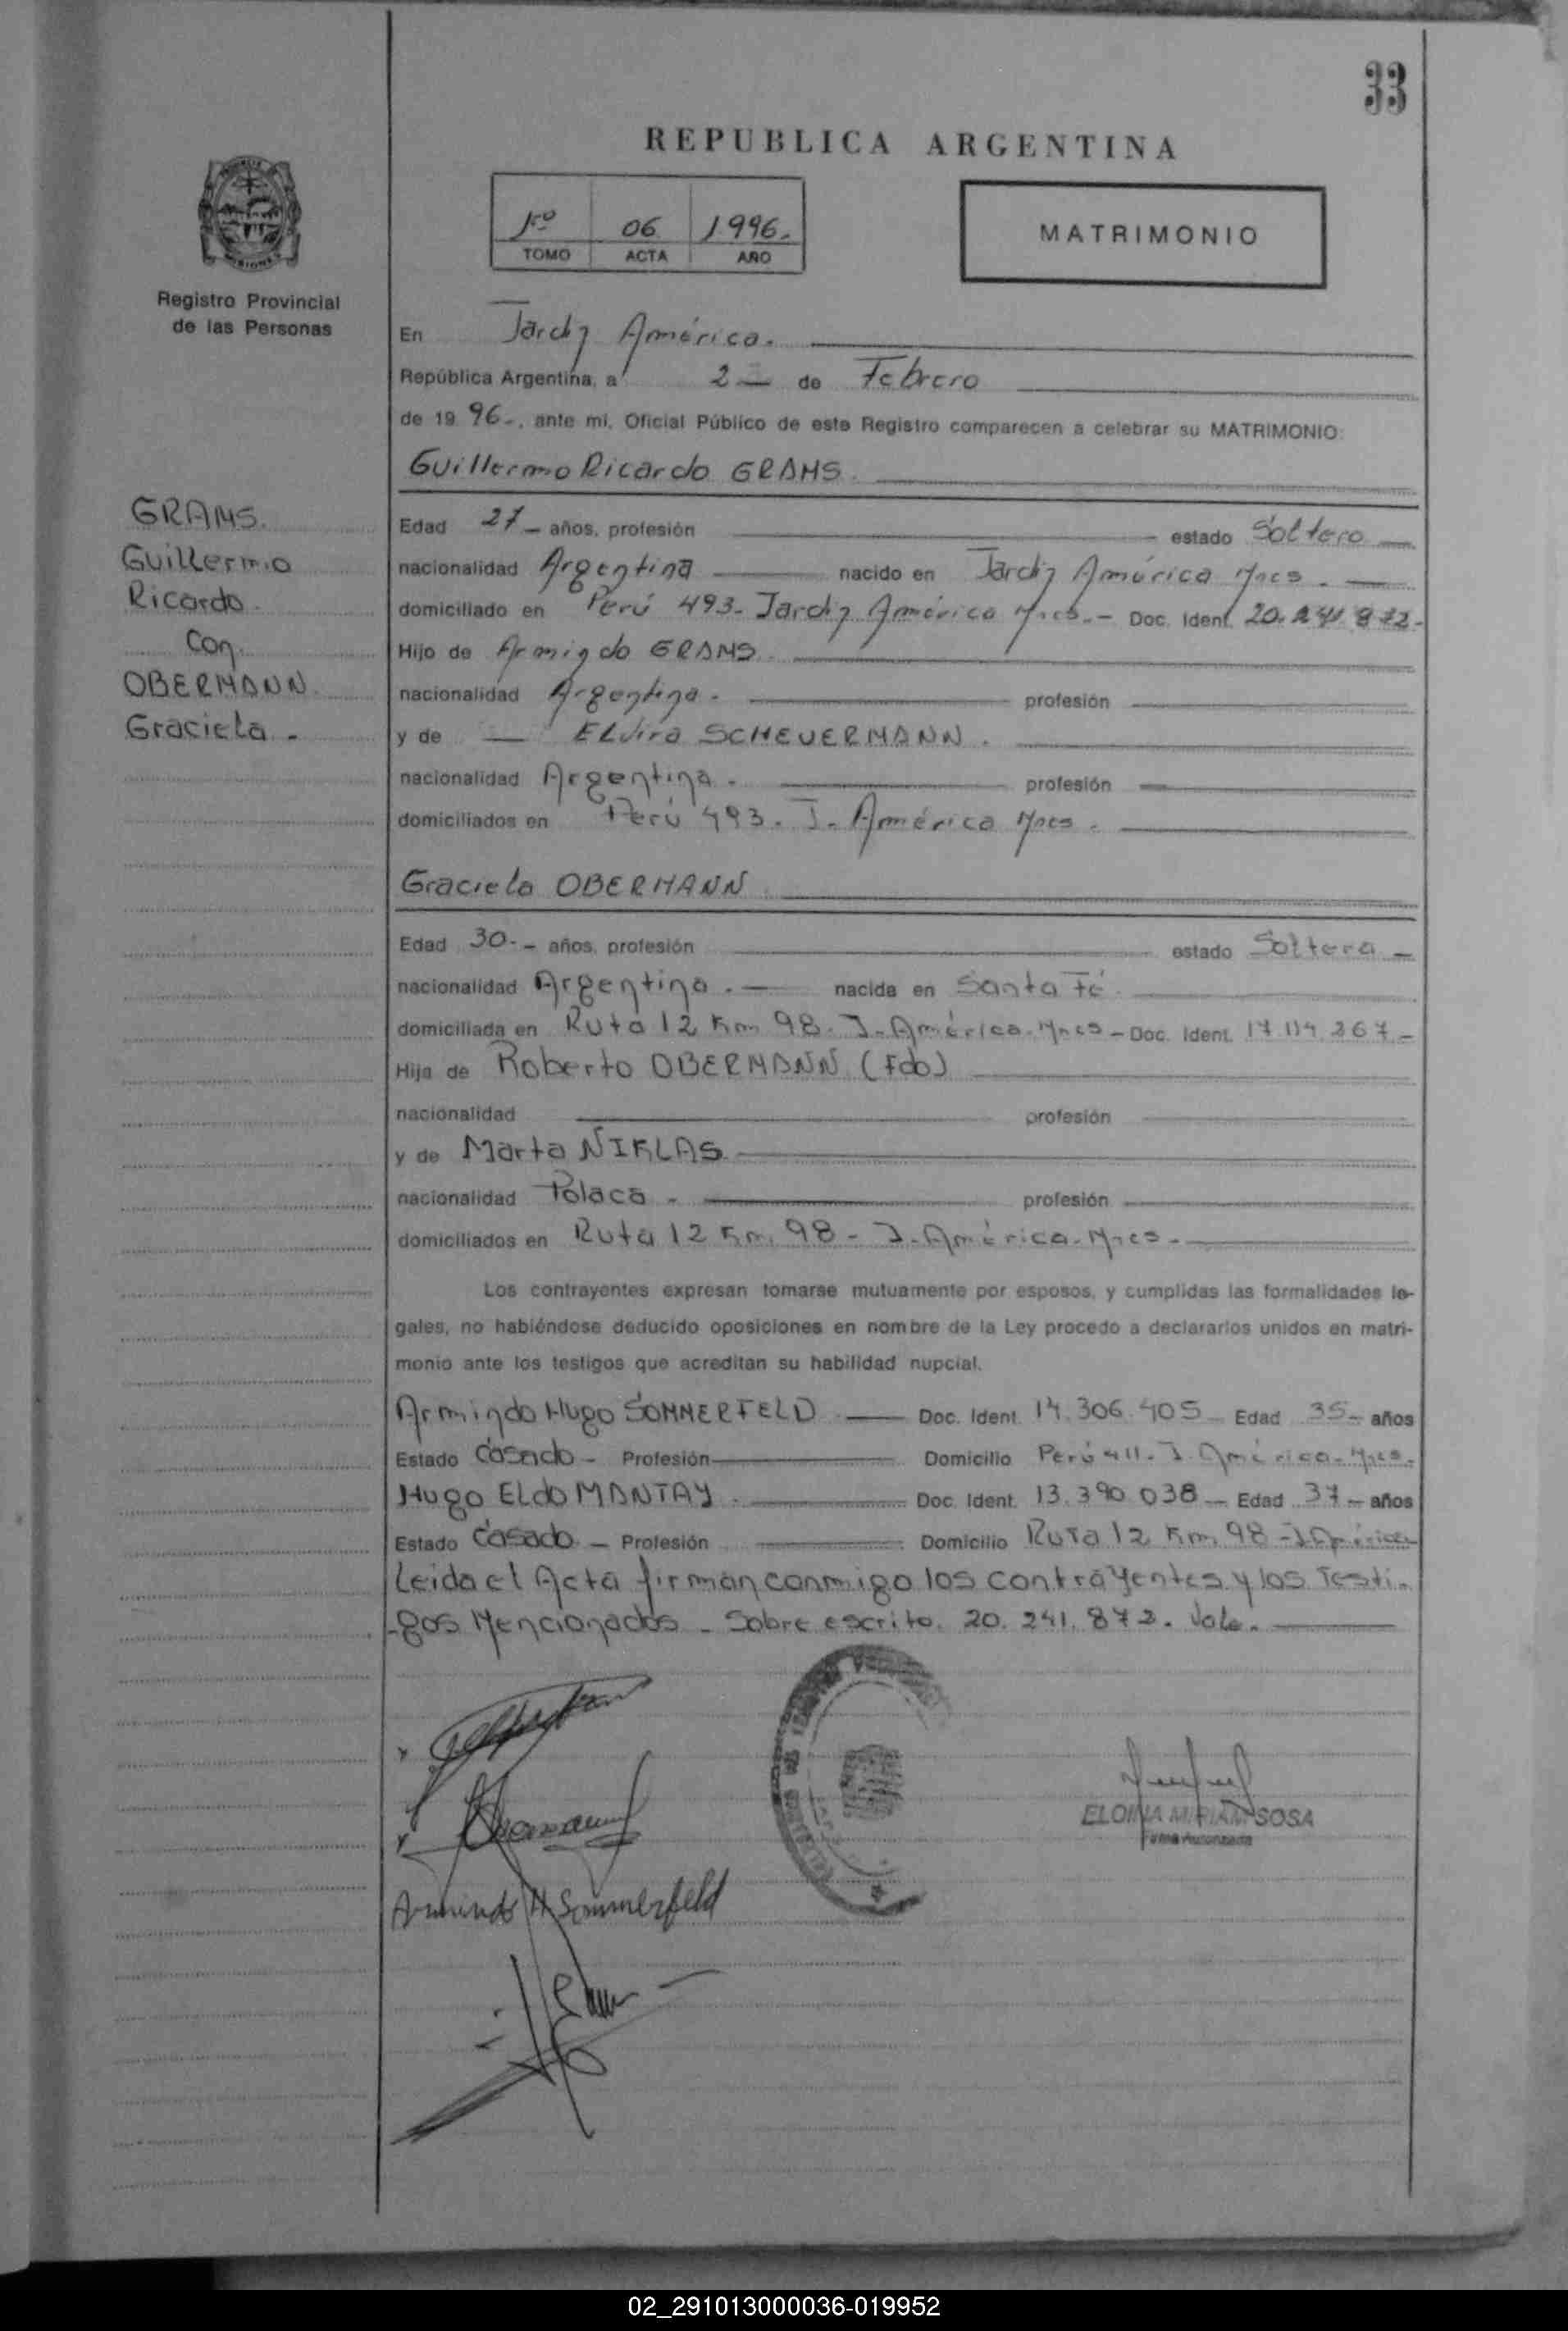 33
REPUBLICA ARGENTINA
1º 06 1996.-
TOMO ACTA AÑO
MATRIMONIO
Registro Provincial
de las Personas
En Jardin América.
República Argentina, a 2 — de Febrero
de 19 96-, ante mi, Oficial Público de este Registro comparecen a celebrar su MATRIMONIO:
Guillermo Ricardo GRAMS.
GRAMS.
Guillermo
Ricardo.
Con
OBERMANN.
Graciela.-
Edad 27- años, profesión — estado Soltero —
nacionalidad Argentina — nacido en Jardin América Mnes. —
domiciliado en Perú 493- Jardin América Mnes.- Doc. Ident. 20.241.872-
Hijo de Armindo GRAMS
nacionalidad Argentina. — profesión —
y de — Elvira SCHEUERMANN.
nacionalidad Argentina. — profesión —
domiciliados en Perú 493. J. América Mnes.
Graciela OBERMANN
Edad 30.- años, profesión — estado Soltera —
nacionalidad Argentina.— nacida en Santa Fé.
domiciliada en Ruta 12 Km 98. J. América. Mnes - Doc. Ident. 17.114.267-
Hija de Roberto OBERMANN (Fdo)
nacionalidad — profesión —
y de Marta NIKLAS —
nacionalidad Polaca. — profesión —
domiciliados en Ruta 12 Km. 98 - J. América. Mnes. —
Los contrayentes expresan tomarse mutuamente por esposos, y cumplidas las formalidades le-
gales, no habiéndose deducido oposiciones en nombre de la Ley procedo a declararlos unidos en matri-
monio ante los testigos que acreditan su habilidad nupcial.
Armindo Hugo SOMMERFELD — Doc. Ident. 14.306.405- Edad 35- años
Estado Casado - Profesión — Domicilio Perú 411. J. América. Mnes.
Hugo Eldo MANTAY. — Doc. Ident. 13.390.038- Edad 37- años
Estado Casado - Profesión — Domicilio Ruta 12 Km. 98 - J. América
Leida el Acta firman conmigo los contrayentes y los Testi-
-gos Mencionados - Sobre escrito. 20.241.872. Vale. —
Armindo H Sommerfeld
ELOINA MIRIAM SOSA
Firma Autorizada
02_291013000036-019952